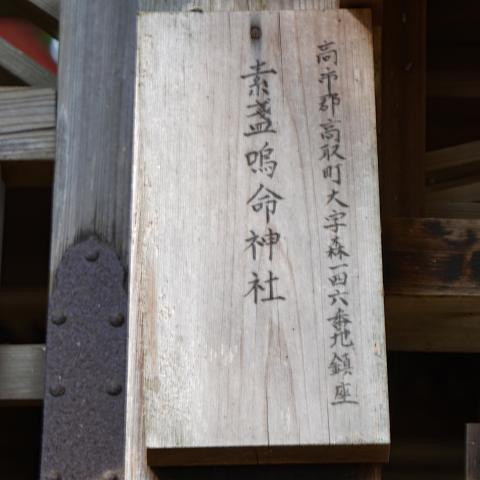 高市郡高取町大字森一四六番地鎮座
素盞嗚命神社